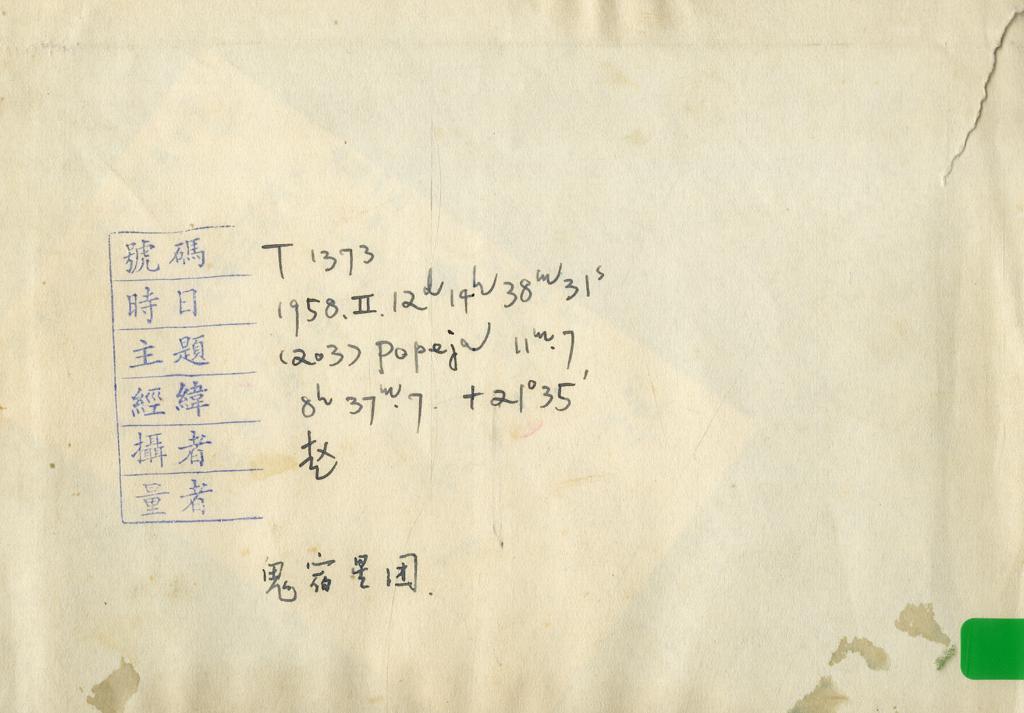 號碼 T 1373
時日 1958.II.12ᵈ14ʰ38ᵐ31ˢ
主題 (203) Popeja 11ᵐ.7
經緯 8ʰ37ᵐ.7. +21°35'
攝者 赵
量者
鬼宿星团.